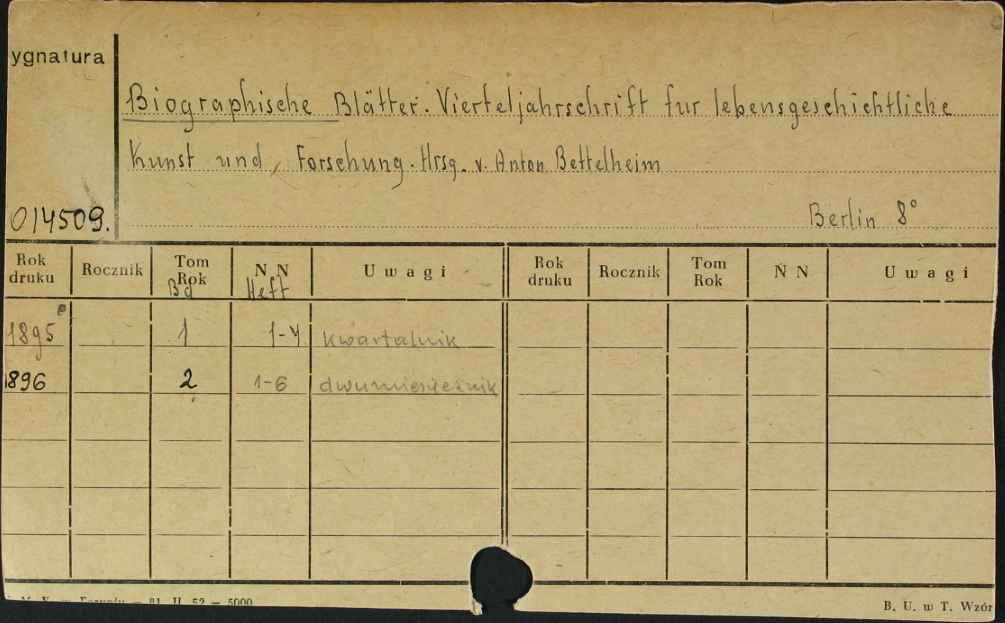 ygnatura
Biographische Blätter. Vierteljahrschrift fur lebensgeschichtliche
Kunst und Forschung. Hrsg. v. Anton Bettelheim
014509.
Berlin 8°
Rok druku Rocznik Tom Rok N N U w a g i Rok druku Rocznik Tom Rok N N U w a g i
Bd Heft
1895 1 1-4 kwartalnik
1896 2 1-6 dwumiesięcznik
52 — 5000
B. U. w T. Wzór